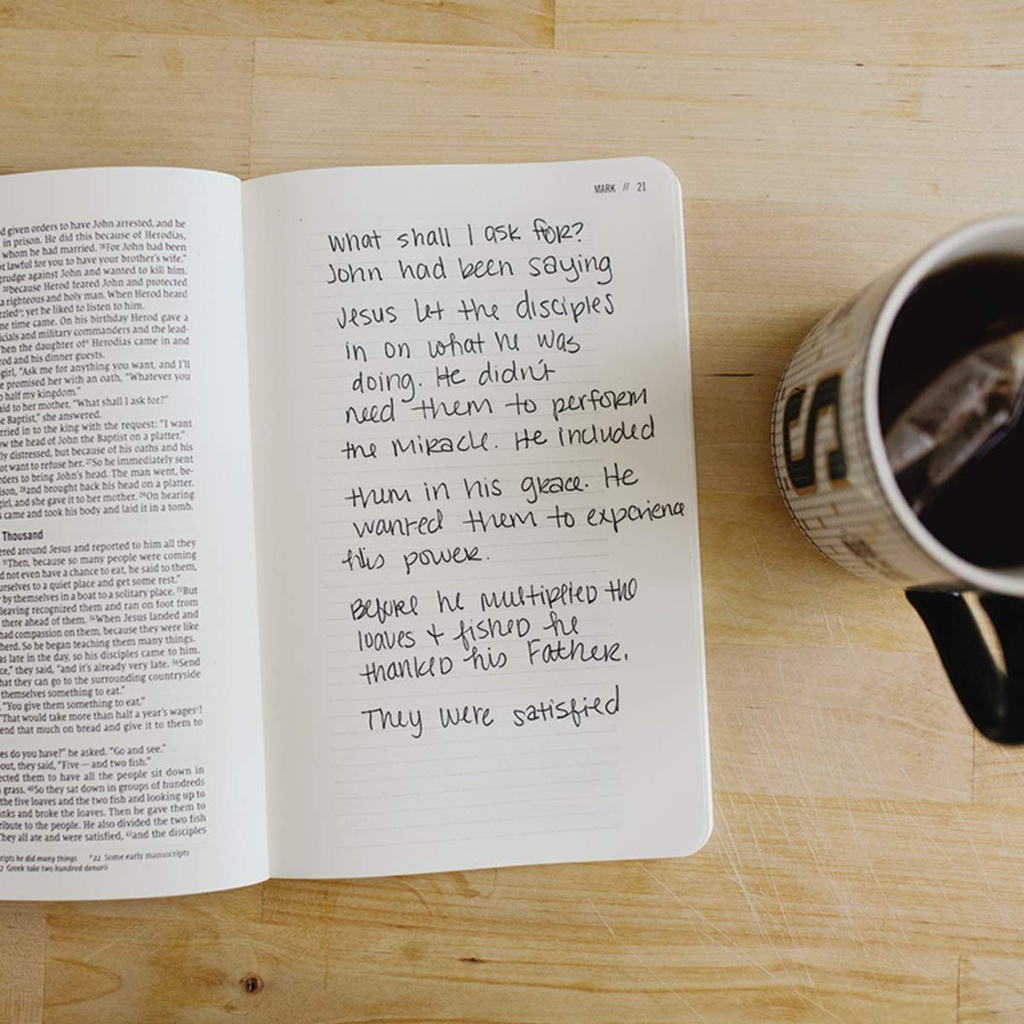 d given orders to have John arrested, and he
in prison. He did this because of Herodias,
whom he had married. 18For John had been
t lawful for you to have your brother's wife."
grudge against John and wanted to kill him.
20because Herod feared John and protected
a righteous and holy man. When Herod heard
zzled; yet he liked to listen to him.
ne time came. On his birthday Herod gave a
icials and military commanders and the lead-
hen the daughter of Herodias came in and
od and his dinner guests.
girl, "Ask me for anything you want, and I'll
e promised her with an oath, "Whatever you
o half my kingdom."
aid to her mother, "What shall I ask for?"
e Baptist," she answered.
rried in to the king with the request: "I want
w the head of John the Baptist on a platter."
ly distressed, but because of his oaths and his
ot want to refuse her. 27So he immediately sent
rders to bring John's head. The man went, be-
ison, 28and brought back his head on a platter.
girl, and she gave it to her mother. 29On hearing
s came and took his body and laid it in a tomb.
Thousand
ered around Jesus and reported to him all they
31Then, because so many people were coming
d not even have a chance to eat, he said to them,
urselves to a quiet place and get some rest."
by themselves in a boat to a solitary place. 33But
leaving recognized them and ran on foot from
there ahead of them. 34When Jesus landed and
had compassion on them, because they were like
herd. So he began teaching them many things.
as late in the day, so his disciples came to him.
ce," they said, "and it's already very late. 36Send
hat they can go to the surrounding countryside
themselves something to eat."
"You give them something to eat."
"That would take more than half a year's wages!
end that much on bread and give it to them to
es do you have?" he asked. "Go and see."
out, they said, "Five — and two fish."
ected them to have all the people sit down in
grass. 40So they sat down in groups of hundreds
the five loaves and the two fish and looking up to
nks and broke the loaves. Then he gave them to
ribute to the people. He also divided the two fish
They all ate and were satisfied, 43and the disciples
ripts he did many things 22 Some early manuscripts
7 Greek take two hundred denarii
MARK // 21
What shall I ask for?
John had been saying
Jesus let the disciples
in on what he was
doing. He didn't
need them to perform
the miracle. He included
them in his grace. He
wanted them to experience
his power.
Before he multiplied the
loaves + fished he
thanked his Father.
They were satisfied